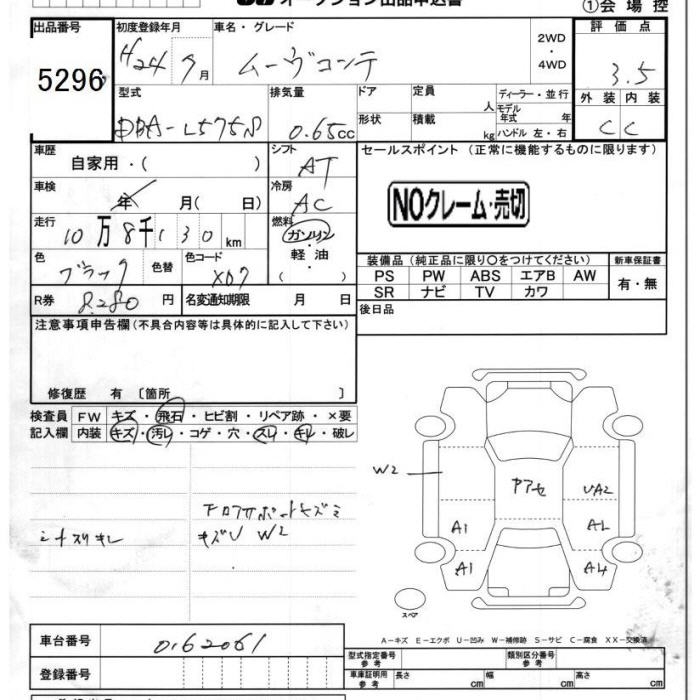 オークション出品申込書
①会場控
出品番号
5296
初度登録年月
H24 7月
車名・グレード
ムーヴコンテ
2WD
・
4WD
評価点
3.5
型式
DBA-L575S
排気量
0.65cc
ドア
形状
定員 人
積載 kg
ディーラー・並行
モデル年式 年
ハンドル 左・右
外装 内装
C C
車歴
自家用・( )
シフト
AT
セールスポイント (正常に機能するものに限ります)
車検
年 月( 日)
冷房
AC
NOクレーム・売切
走行
10万8千130km
燃料
ガソリン
・
軽油
・
( )
色
ブラック
色替
色カラーコード
X07
装備品(純正品に限り○をつけてください)
新車保証書
PS PW ABS エアB AW
SR ナビ TV カワ
有・無
R券
8,280円
名変通知期限 月 日
後日品
注意事項申告欄(不具合内容等は具体的に記入して下さい)
修復歴 有 〔箇所 〕
検査員
記入欄
FW キズ・飛石・ヒビ割・リペア跡・×要
内装 キズ・汚レ・コゲ・穴・スレ・キレ・破レ
シートスリキレ
キズU W2
W2
UA2
A1
A1
A4
スペア
A-キズ E-エクボ U-凹み W-補修跡 S-サビ C-腐食 XX-交換済
車台番号
0162061
登録番号
型式指定番号
参考
類別区分番号
参考
車庫証明用
参考
長さ cm
幅 cm
高さ cm